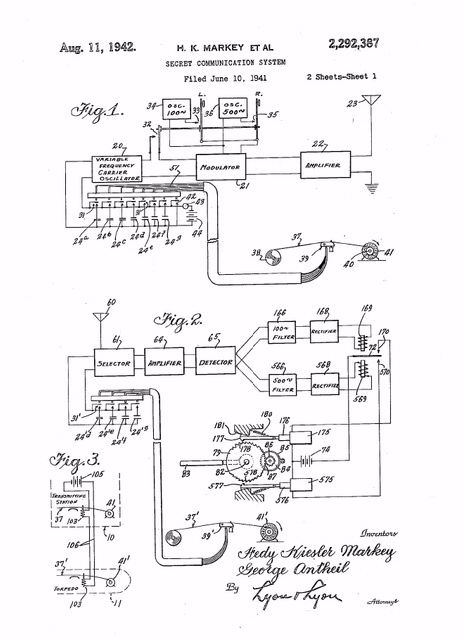 Aug. 11, 1942.
H. K. MARKEY ET AL
2,292,387
SECRET COMMUNICATION SYSTEM
Filed June 10, 1941
2 Sheets-Sheet 1
Fig.1.
L.
R.
34
OSC.
100~
33
36
OSC.
500~
35
23
32
20
VARIABLE
FREQUENCY
CARRIER
OSCILLATOR
MODULATOR
21
22
AMPLIFIER
42
43
44
31
24a
24b
24c
24d
24e
24f
24g
37
38
39
40
41
60
Fig.2.
61
SELECTOR
64
AMPLIFIER
65
DETECTOR
166
100~
FILTER
168
RECTIFIER
169
170
72
570
566
500~
FILTER
568
RECTIFIER
569
31'
24'd
24'e
24'f
24'g
181
180
176
177
175
79
178
86
85
84
74
83
82
578
87
577
576
575
Fig.3.
105
TRANSMITTING
STATION
37
41
103
10
106
37'
41'
TORPEDO
103
11
37'
39'
41'
Inventors
Hedy Kiesler Markey
George Antheil
By Lyon & Lyon
Attorneys